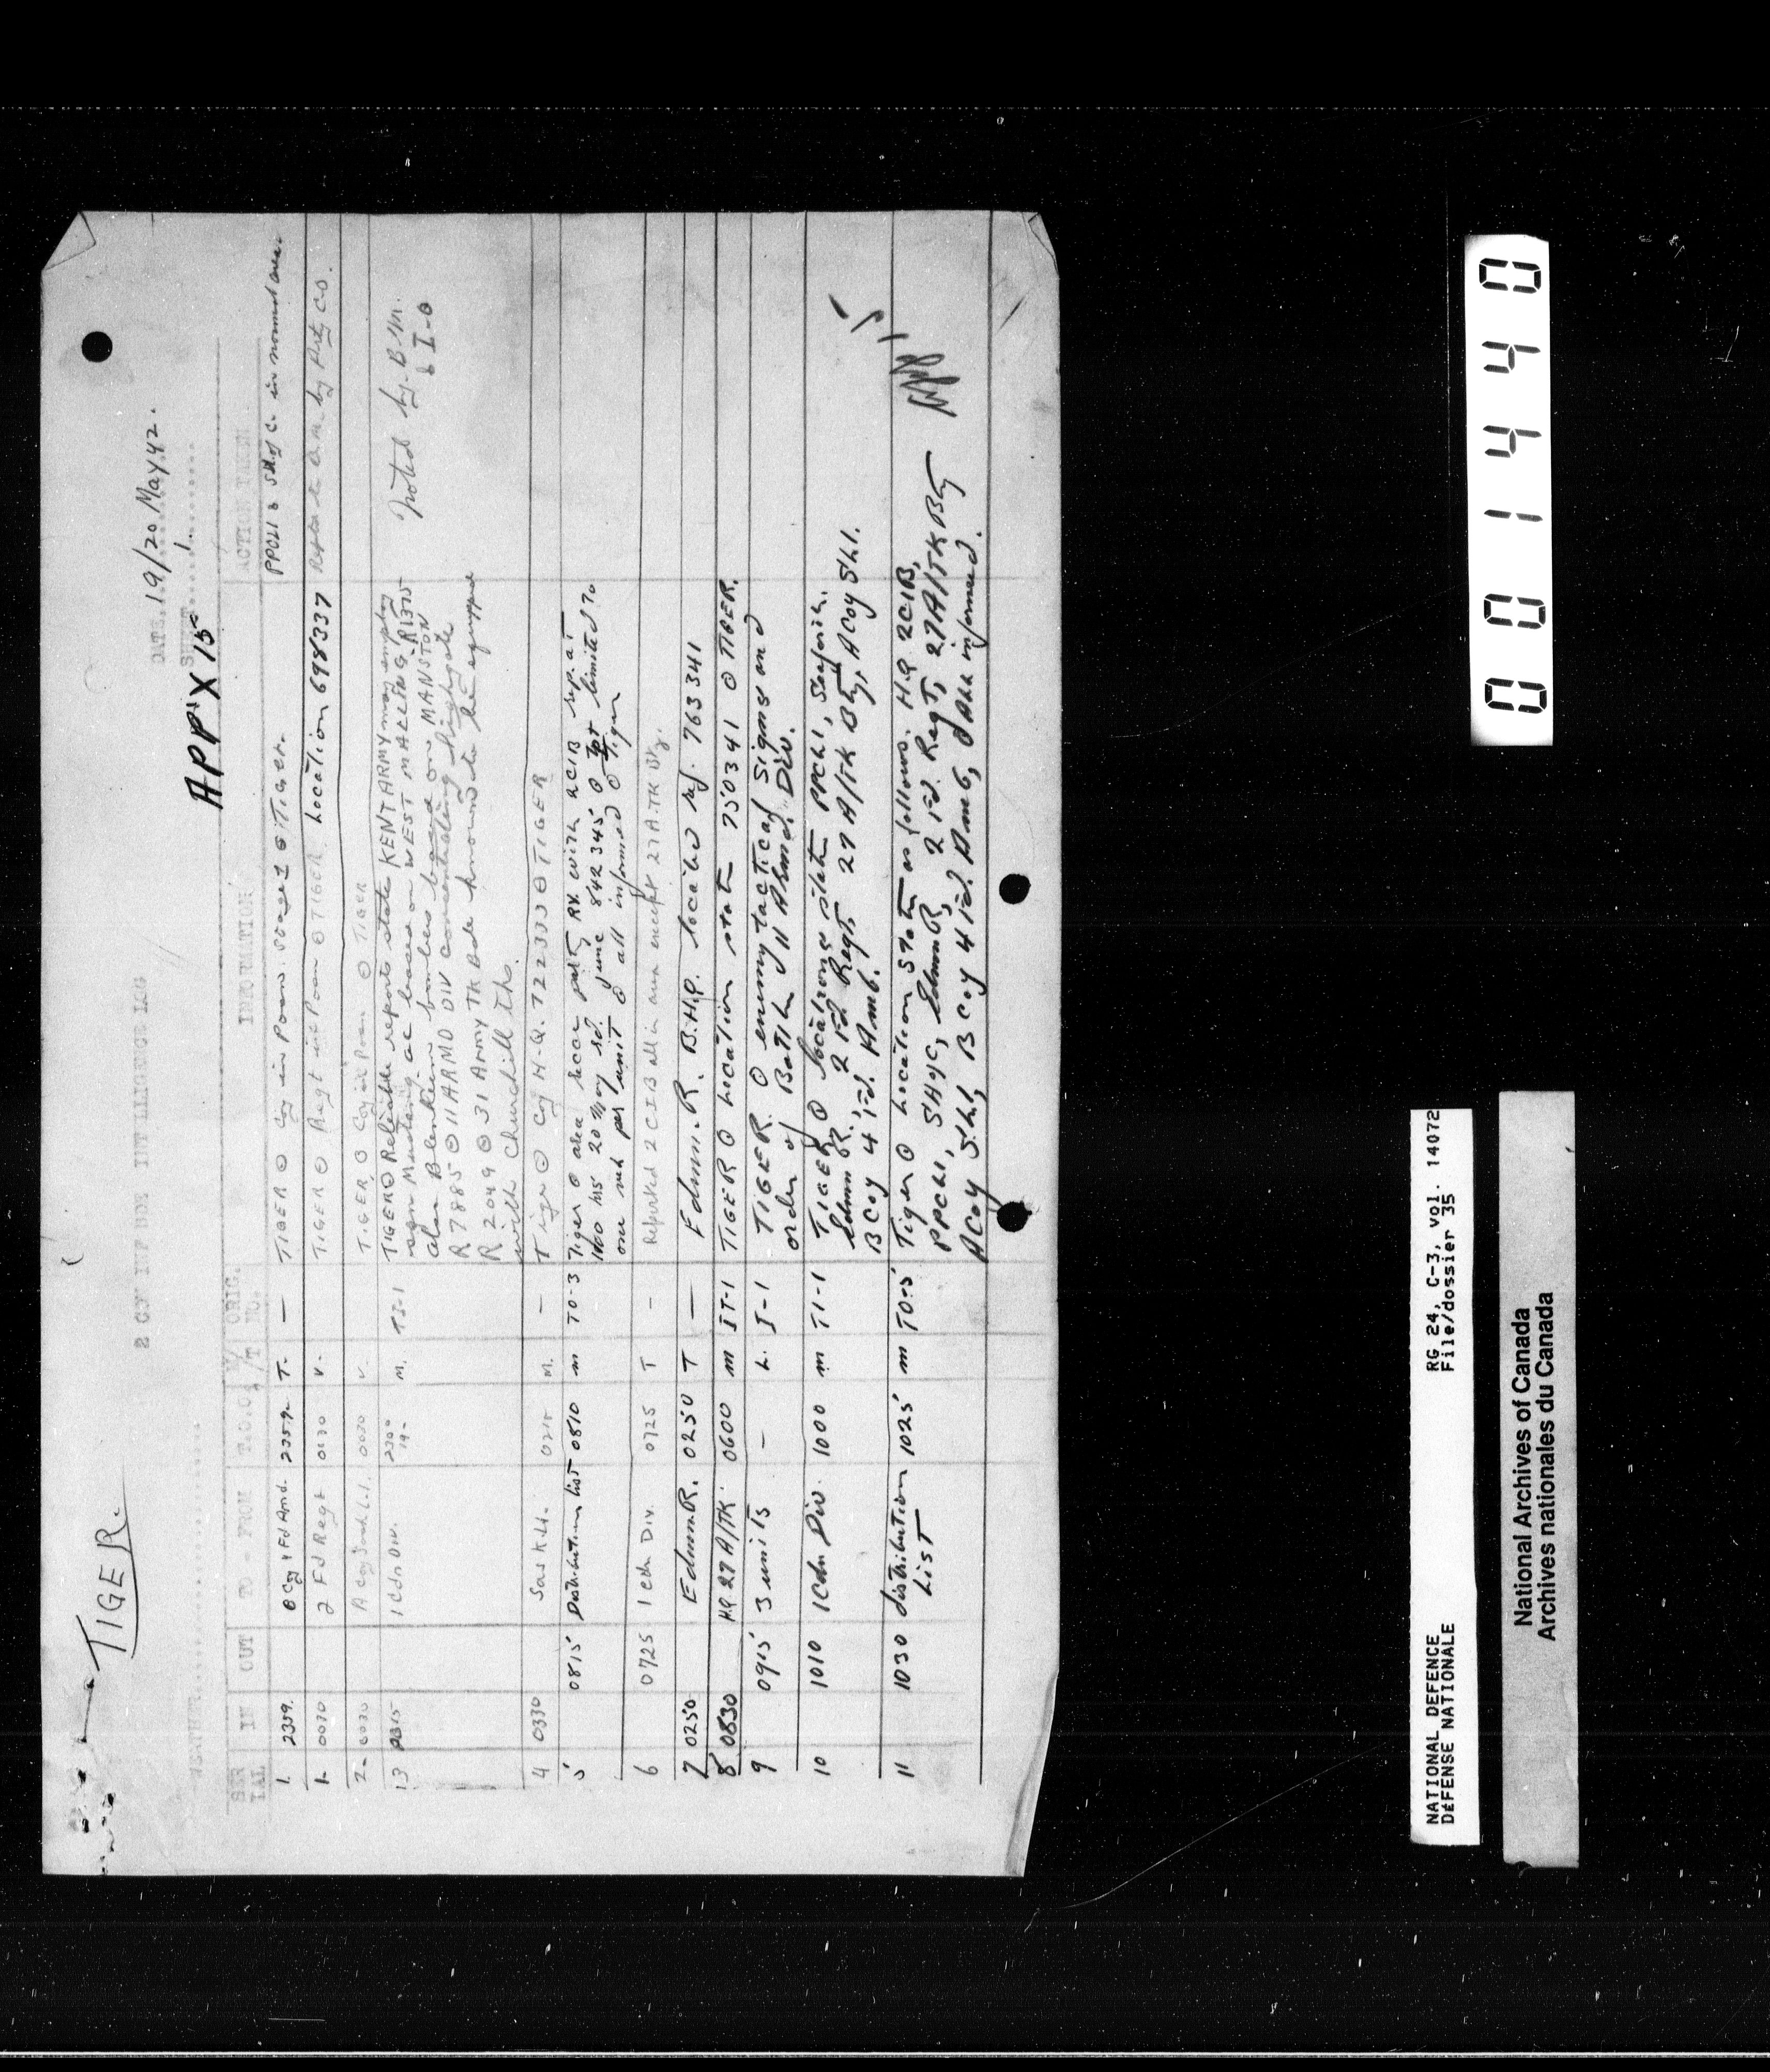 TIGER.
2 CDN INF BDE INT LIGENCE LOG
DATE 19/20 May 42.
SHEET 1.
APP'X 15
SERIAL IN OUT TO - FROM T.O.O. W/T ORIG. NO. INFORMATION ACTION TAKEN
1. 2359. 2359 T. — TIGER ⊙ Coy in Posn. ⊙ TIGER. PPCLI & SH of C in normal area.
1. 0030 2 Fd Regt 0030 V. TIGER ⊙ Regt in Posn ⊙ TIGER. Location 698337
2 0030 A Coy 0030 V. TIGER ⊙ Coy in Posn ⊙ TIGER
13 1 Cdn Div. 2300 19 M. TI-1 TIGER ⊙ Reliable reports state KENT ARMY may employ
at bases on WEST MALLING R1375
also Blenheim bombers based on MANSTON
R 7885 ⊙ 11 ARMD DIV concentrating Highgate
R 2049 ⊙ 31 Army TK Bde known to be equipped
with Churchill tks.
Noted by B M.
& I-O
4 0330 Sask L.I. M. — Tiger ⊙ Coy H.Q. 722333 ⊙ TIGER
5 0815 Distribution List 0810 M TO-3 Tiger ⊙ area recce party RV with 2CIB rep. at
1100 hrs 20 May rd junc 842345 ⊙ limited to
one veh per unit ⊙ all informed ⊙ Tiger
6 0725 1 Cdn Div. 0725 T — Reported 2 CIB all in area except 27 A.TK Bty.
7 0250 Edmn.R. 0250 T — Edmn.R. B.H.Q. located ref. 763341
8 0830 HQ 27 A/TK 0600 M IT-1 TIGER ⊙ Location statn 750341 ⊙ TIGER.
9 0915 3 units — L. I-1 TIGER. ⊙ enemy tactical signs and
order of Battle 11 Armd. Div.
10 1010 1 Cdn Div. 1000 M TI-1 TIGER ⊙ locations PPCLI, Seaforth.
Edmn R, 2 Fd Regt, 27 A/TK Bty, A Coy S.L.I.
B Coy 4 Fd. Amb.
11 1030 distribution List 1025 M TO-5 Tiger ⊙ Location statn as follows. H.Q. 2CIB,
PPCLI, SHofC, Edmn R, 2 Fd. Regt, 27 A/TK Bty
A Coy S.L.I, B Coy 4 Fd. Amb, informed.
0 0 1 4 4 0
NATIONAL DEFENCE RG 24, C-3, vol. 14072
DÉFENSE NATIONALE File/dossier 35
National Archives of Canada
Archives nationales du Canada